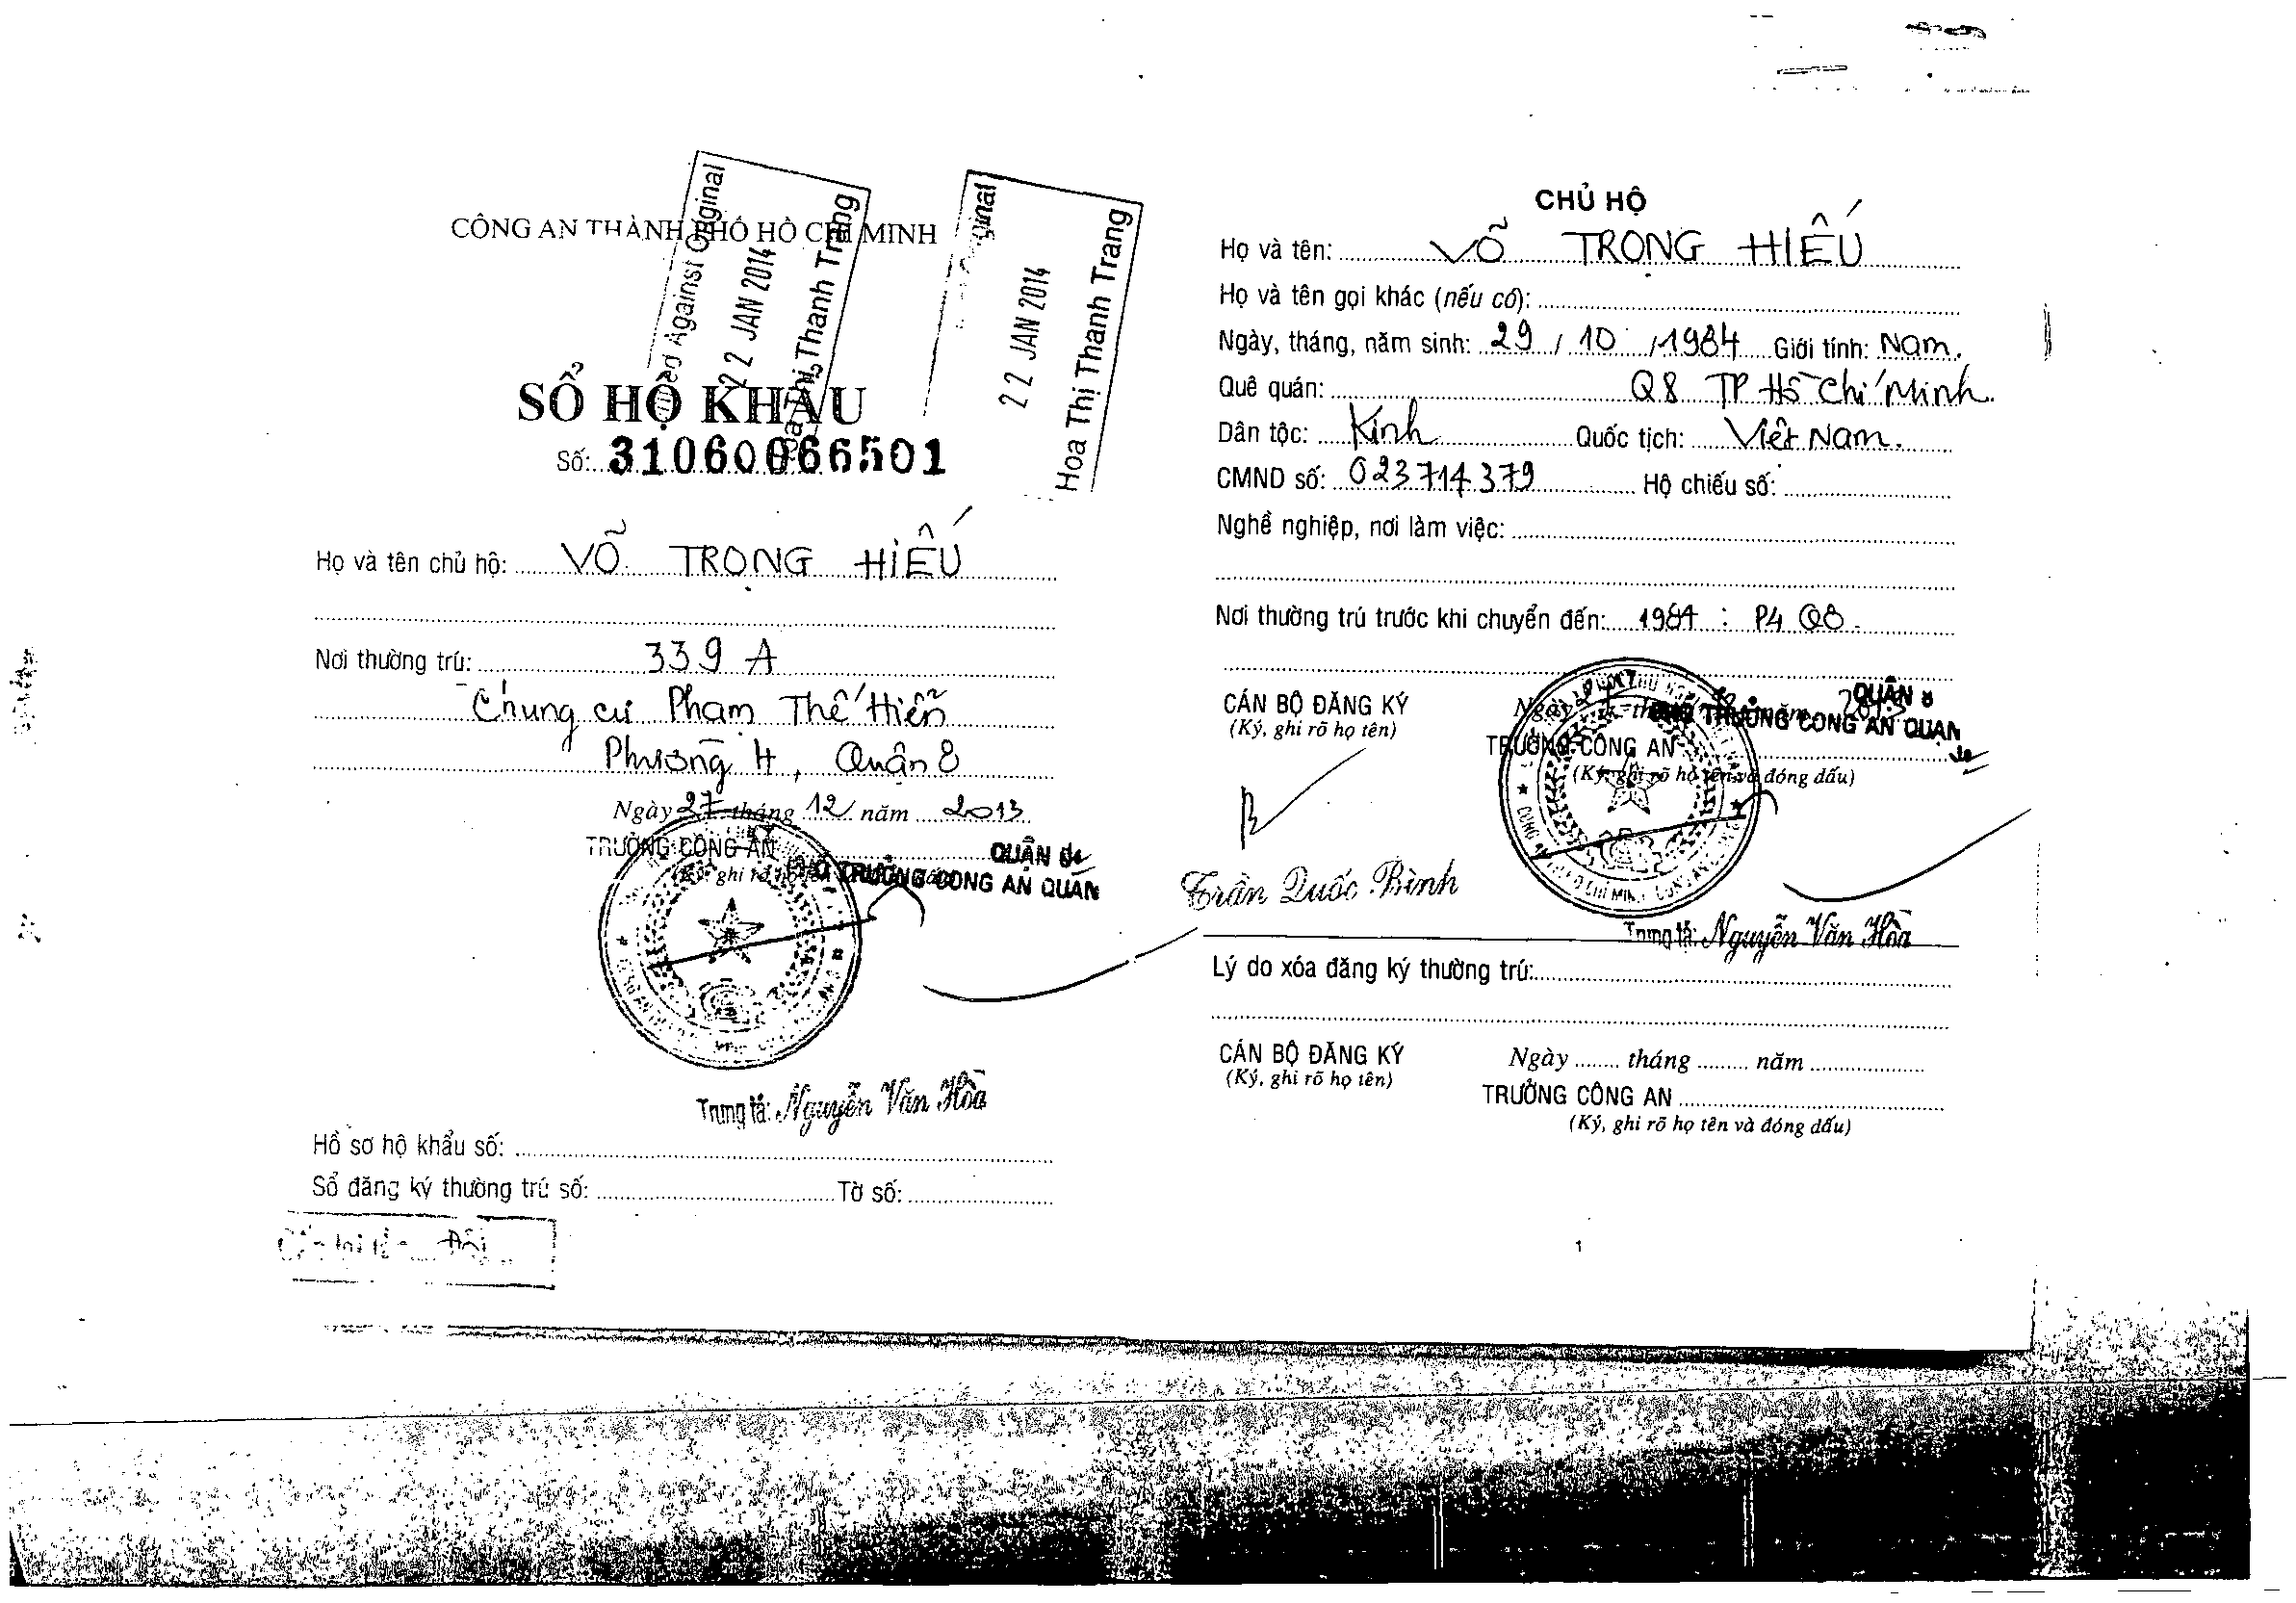 CÔNG AN THÀNH PHỐ HỒ CHÍ MINH
Against Original
22 JAN 2014
Thị Thanh Trang
22 JAN 2014
Hoa Thị Thanh Trang
SỔ HỘ KHẨU
Số: 31060066501
Họ và tên chủ hộ: VÕ TRỌNG HIẾU
Nơi thường trú: 339 A
Chung cư Phạm Thế Hiển
Phường 4, Quận 8
Ngày 27 tháng 12 năm 2013
TRƯỞNG CÔNG AN
QUẬN 8
PHÓ TRƯỞNG CÔNG AN QUẬN
Trung tá: Nguyễn Văn Hòa
Hồ sơ hộ khẩu số:
Sổ đăng ký thường trú số: Tờ số:
CHỦ HỘ
Họ và tên: VÕ TRỌNG HIẾU
Họ và tên gọi khác (nếu có):
Ngày, tháng, năm sinh: 29 / 10 / 1984 Giới tính: Nam.
Quê quán: Q8 TP Hồ Chí Minh.
Dân tộc: Kinh Quốc tịch: Việt Nam.
CMND số: 023714379 Hộ chiếu số:
Nghề nghiệp, nơi làm việc:
Nơi thường trú trước khi chuyển đến: 1984 : P4 Q8.
CÁN BỘ ĐĂNG KÝ
(Ký, ghi rõ họ tên)
QUẬN 8
PHÓ TRƯỞNG CÔNG AN QUẬN
TRƯỞNG CÔNG AN
(Ký, ghi rõ họ tên và đóng dấu)
Trần Quốc Bình
Trung tá: Nguyễn Văn Hòa
Lý do xóa đăng ký thường trú:
CÁN BỘ ĐĂNG KÝ
(Ký, ghi rõ họ tên)
Ngày tháng năm
TRƯỞNG CÔNG AN
(Ký, ghi rõ họ tên và đóng dấu)
1